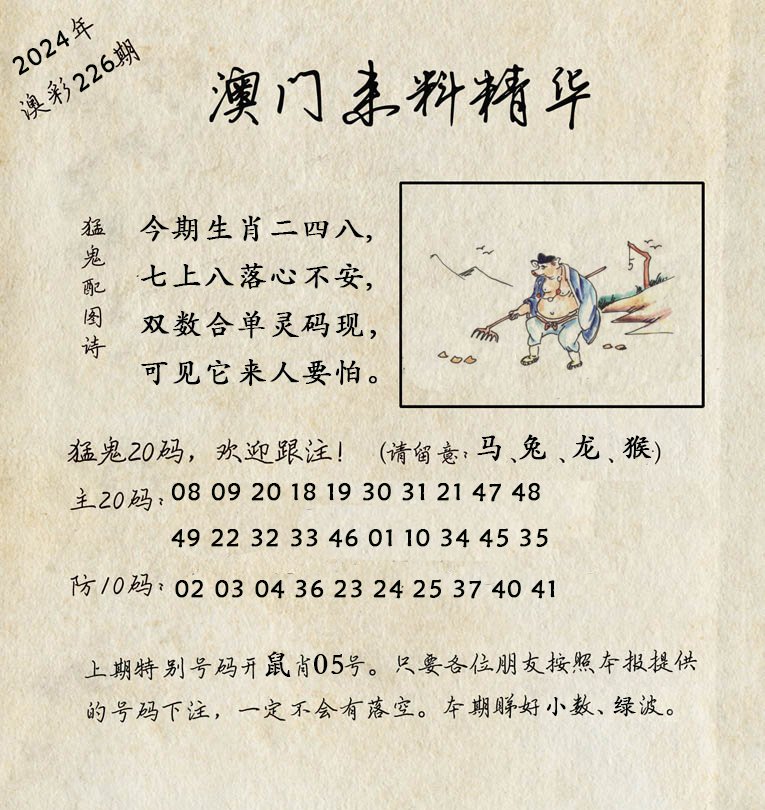 2024年
澳彩226期
澳门来料精华
猛鬼配图诗
今期生肖二四八,
七上八落心不安,
双数合单灵码现,
可见它来人要怕。
猛鬼20码，欢迎跟注！（请留意：马、兔、龙、猴）
主20码：08 09 20 18 19 30 31 21 47 48
49 22 32 33 46 01 10 34 45 35
防10码：02 03 04 36 23 24 25 37 40 41
上期特别号码开鼠肖05号。只要各位朋友按照本报提供
的号码下注，一定不会有落空。本期睇好小数、绿波。